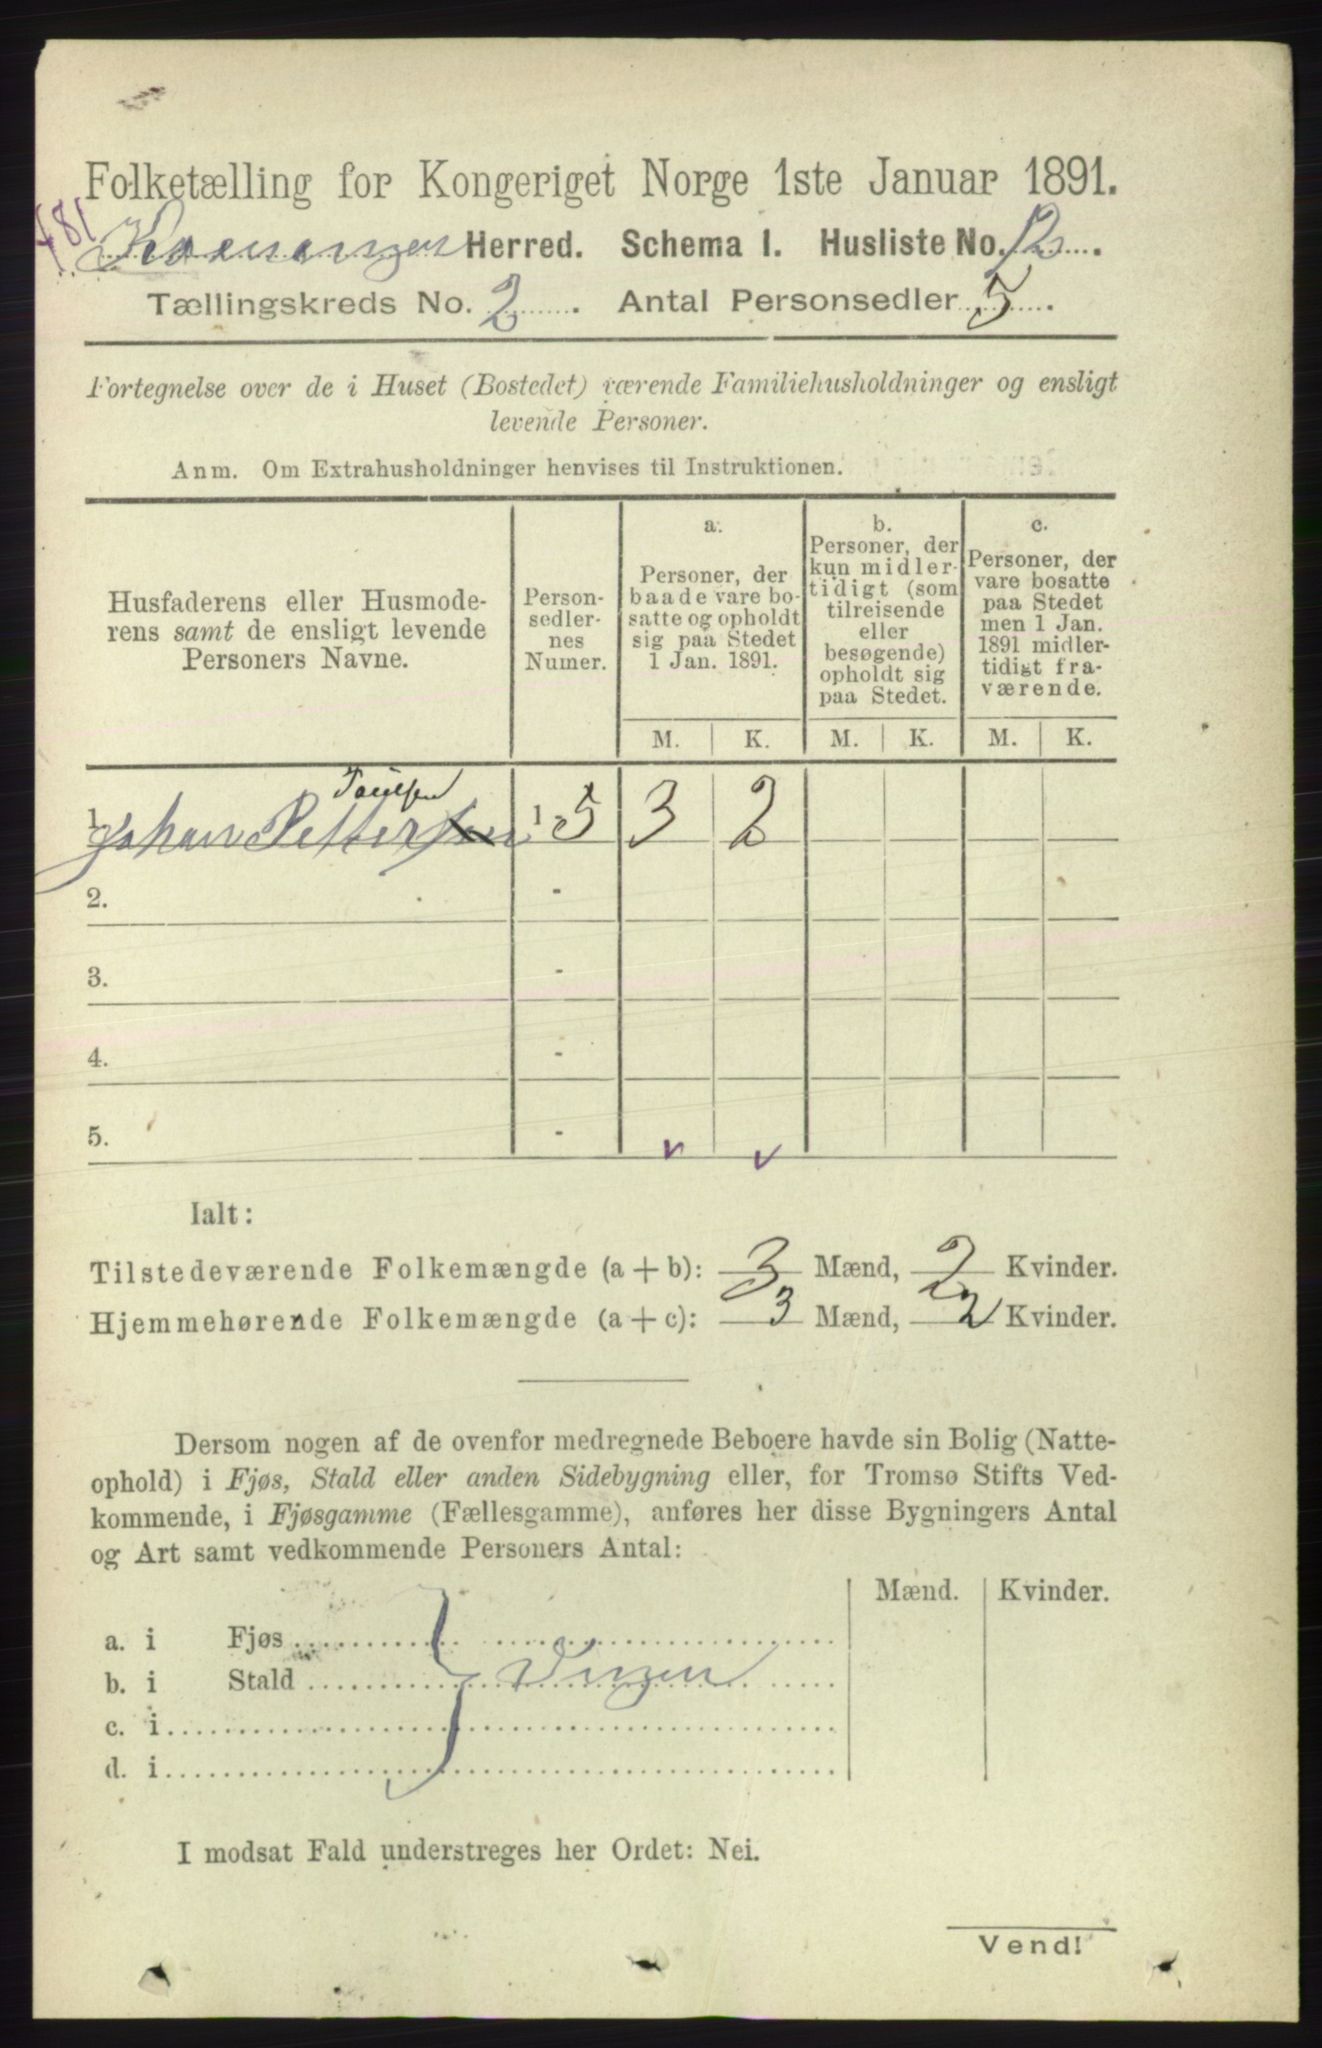 Folketælling for Kongeriget Norge 1ste Januar 1891.
481
Kvænangen Herred. Schema I. Husliste No. 12.
Tællingskreds No. 2. Antal Personsedler 5.
Fortegnelse over de i Huset (Bostedet) værende Familiehusholdninger og ensligt
levende Personer.
Anm. Om Extrahusholdninger henvises til Instruktionen.
Husfaderens eller Husmode-
rens samt de ensligt levende
Personers Navne.
Person-
sedler-
nes
Numer.
a.
Personer, der
baade vare bo-
satte og opholdt
sig paa Stedet
1 Jan. 1891.
b.
Personer, der
kun midler-
tidigt (som
tilreisende
eller
besøgende)
opholdt sig
paa Stedet.
c.
Personer, der
vare bosatte
paa Stedet
men 1 Jan.
1891 midler-
tidigt fra-
værende.
M. K. M. K. M. K.
1. Johan Petter 1-5 3 2
2. -
3. -
4. -
5. -
Ialt:
Tilstedeværende Folkemængde (a + b): 3 Mænd, 2 Kvinder.
Hjemmehørende Folkemængde (a + c): 3 Mænd, 2 Kvinder.
Dersom nogen af de ovenfor medregnede Beboere havde sin Bolig (Natte-
ophold) i Fjøs, Stald eller anden Sidebygning eller, for Tromsø Stifts Ved-
kommende, i Fjøsgamme (Fællesgamme), anføres her disse Bygningers Antal
og Art samt vedkommende Personers Antal:
Mænd. Kvinder.
a. i Fjøs
b. i Stald Ingen
c. i
d. i
I modsat Fald understreges her Ordet: Nei.
Vend!